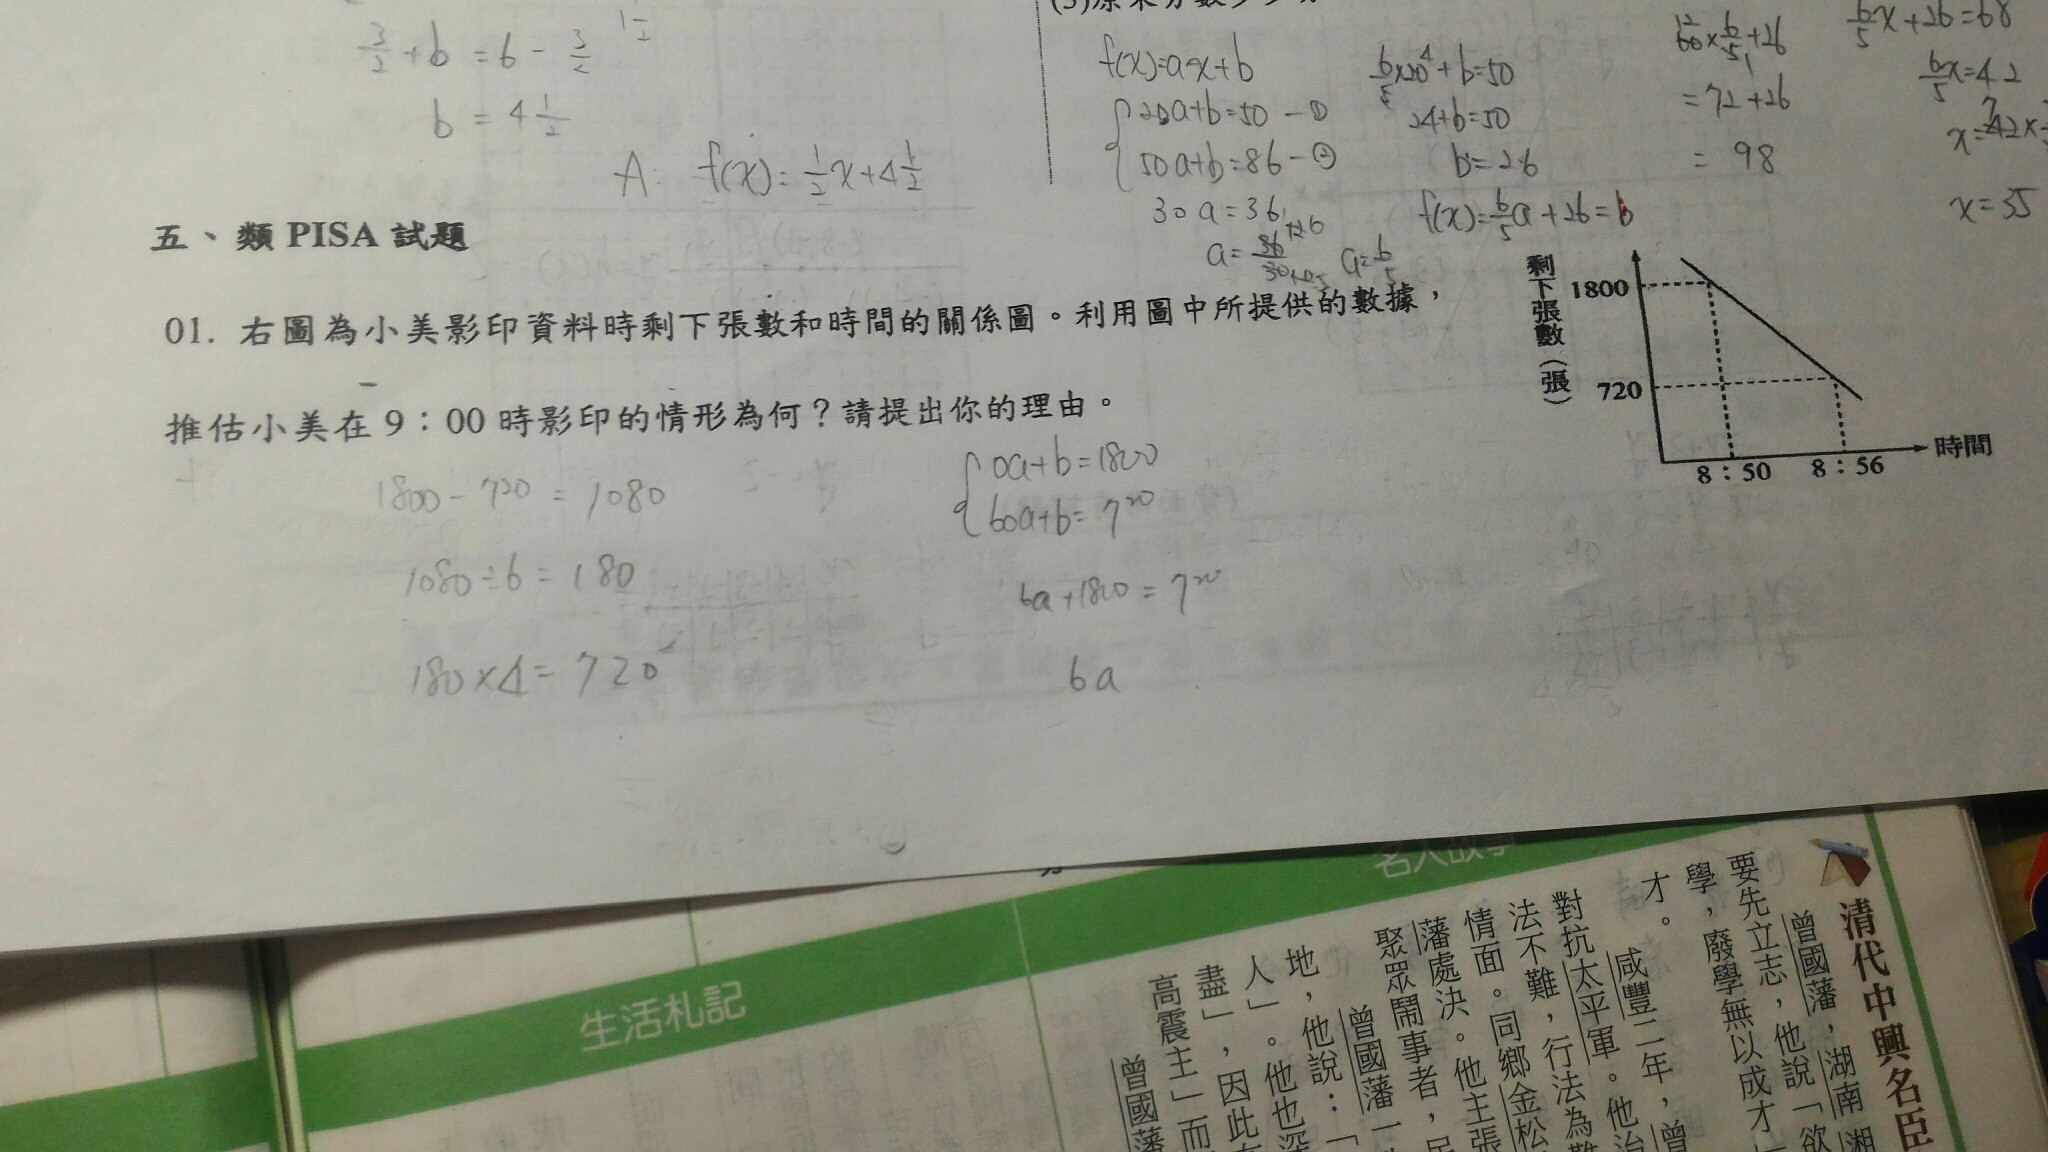 3/2 + b = 6 - 3/2
b = 4 1/2
A: f(x) = 1/2 x + 4 1/2
f(x)=ax+b
20a+b=50 — ①
50a+b=86 — ②
30a=36
a=6/5
6/5×20+b=50
24+b=50
b=26
f(x)=6/5a+26=b
60×6/5+26
=72+26
= 98
6/5x+26=68
6/5x=42
x=35
五、類 PISA 試題
01. 右圖為小美影印資料時剩下張數和時間的關係圖。利用圖中所提供的數據，
推估小美在 9：00 時影印的情形為何？請提出你的理由。
剩下張數（張）
1800
720
8：50 8：56
時間
1800 - 720 = 1080
1080 ÷ 6 = 180
180 × 4 = 720
0a+b=1800
60a+b=720
6a+1800=720
6a
生活札記
名人故事
清代中興名臣
曾國藩，湖南湘
要先立志，他說「欲
學，廢學無以成才
才。
咸豐二年，曾
對抗太平軍。他治
法不難，行法為難
情面。同鄉金松
藩處決。他主張
聚眾鬧事者，
曾國藩一
地，他說：「
人」。他也深
盡」，因此
高震主」而
曾國藩